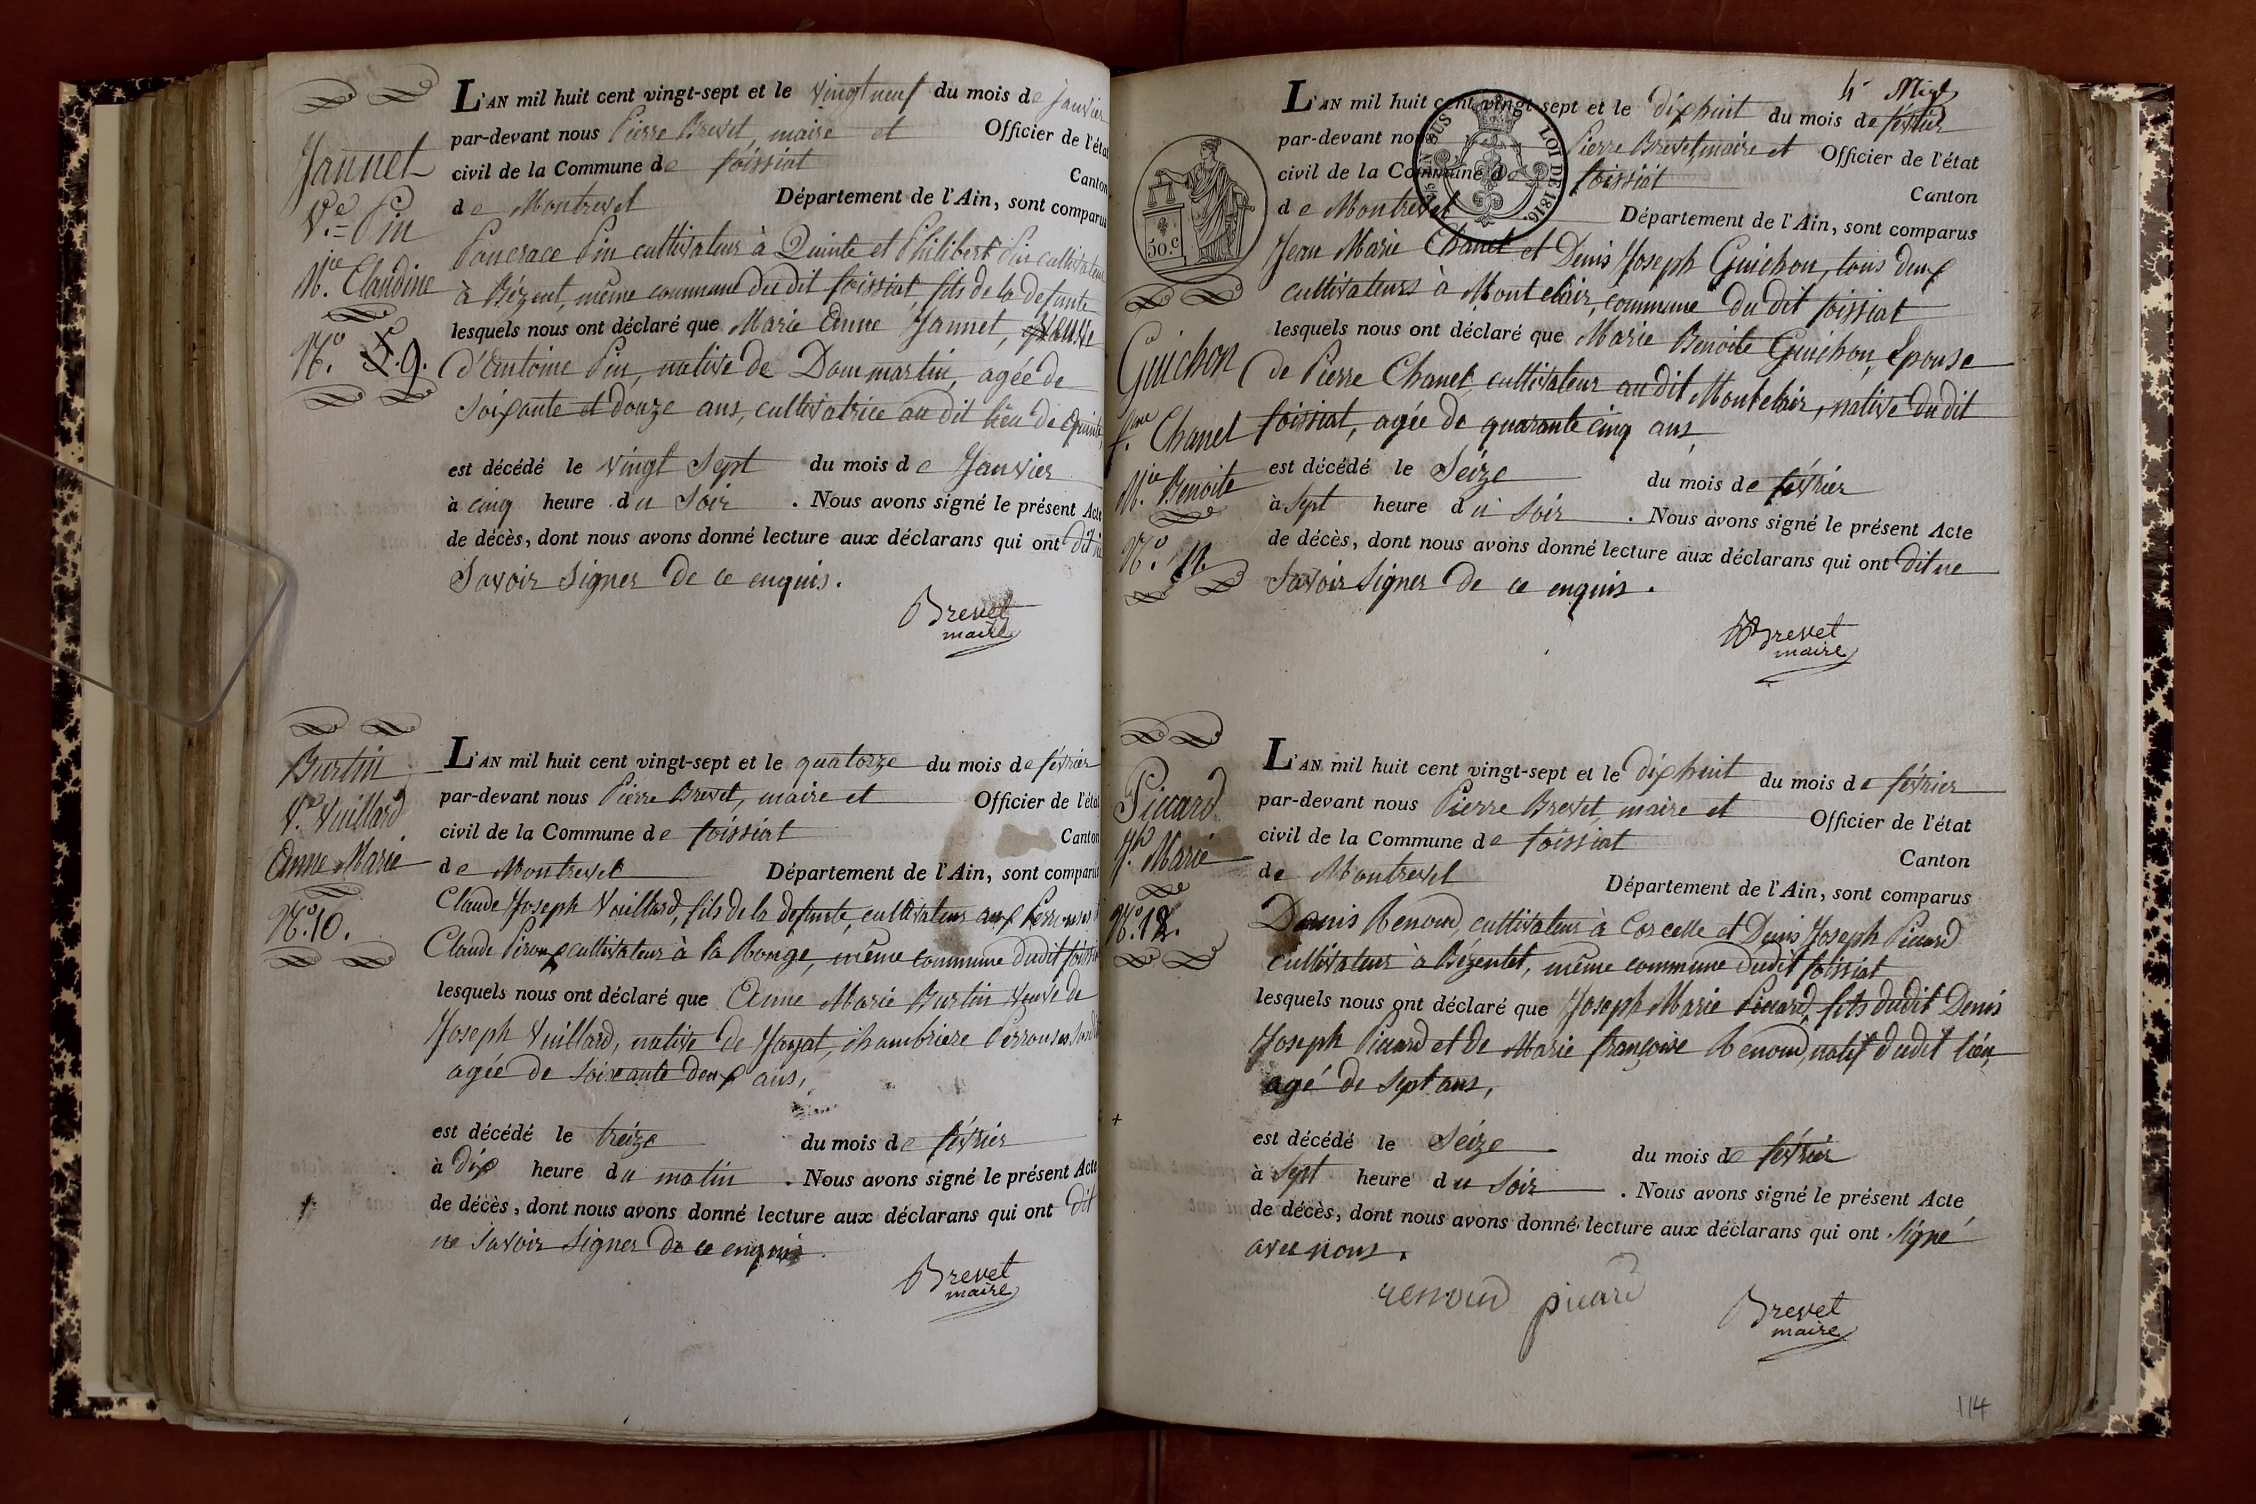 Jannet
V.e Pin
M.ie Claudine
N.o 9.
L'AN mil huit cent vingt-sept et le vingt neuf du mois de Janvier
par-devant nous Pierre Brevet, maire et Officier de l'état
civil de la Commune de foissiat Canton
de Montrevel Département de l'Ain, sont comparus
Pancrace Pin cultivateur à Quinte et Philibert Pin cultivateur
à Bézent, même commune du dit foissiat, fils de la defunte
lesquels nous ont déclaré que Marie Anne Jannet, veuve
d'Antoine Pin, native de Dommartin, agée de
soixante et douze ans, cultivatrice au dit lieu de Quinte,
est décédé le vingt Sept du mois de Janvier
à cinq heure du Soir . Nous avons signé le présent Acte
de décès, dont nous avons donné lecture aux déclarans qui ont dit ne
Savoir Signer de ce enquis.
Brevet
maire
Burtin
V.e Vuillard
Anne Marie
N.o 10.
L'AN mil huit cent vingt-sept et le quatorze du mois de février
par-devant nous Pierre Brevet, maire et Officier de l'état
civil de la Commune de foissiat Canton
de Montrevel Département de l'Ain, sont comparus
Claude Joseph Vuillard, fils de la defunte, cultivateur aux
Claude cultivateur à la Ronge, même commune dudit foissiat
lesquels nous ont déclaré que Anne Marie Burtin veuve de
Joseph Vuillard, native de Jayat, chambriere
agée de Soixante deux ans,
est décédé le treize du mois de février
à dix heure du matin . Nous avons signé le présent Acte
de décès, dont nous avons donné lecture aux déclarans qui ont dit
ne Savoir Signer de ce enquis.
Brevet
maire
50.c
LOI DE 1816.
Guichon
f.me Chanel
M.ie Benoite
N.o 11.
L'AN mil huit cent vingt-sept et le dixhuit du mois de février
par-devant nous Pierre Brevet maire et Officier de l'état
civil de la Commune de foissiat Canton
de Montrevel Département de l'Ain, sont comparus
Jean Marie Chanel et Denis Joseph Guichon, tous deux
cultivateurs à Montclair, commune du dit foissiat
lesquels nous ont déclaré que Marie Benoite Guichon, Epouse
de Pierre Chanel cultivateur audit Montclair, native dudit
foissiat, agée de quarante cinq ans,
est décédé le Seize du mois de février
à Sept heure du Soir . Nous avons signé le présent Acte
de décès, dont nous avons donné lecture aux déclarans qui ont dit ne
Savoir Signer de ce enquis.
Brevet
maire
Picard
J.h Marie
N.o 12.
L'AN mil huit cent vingt-sept et le dixhuit du mois de février
par-devant nous Pierre Brevet, maire et Officier de l'état
civil de la Commune de foissiat Canton
de Montrevel Département de l'Ain, sont comparus
Denis Renoud, cultivateur à Corcelle et Denis Joseph Picard
cultivateur à Bézentet, même commune dudit foissiat
lesquels nous ont déclaré que Joseph Marie Picard, fils dudit Denis
Joseph Picard et de Marie françoise Renoud, natif dudit lieu,
agé de Sept ans,
est décédé le Seize du mois de février
à Sept heure du Soir . Nous avons signé le présent Acte
de décès, dont nous avons donné lecture aux déclarans qui ont Signé
avec nous.
renoud picard
Brevet
maire
114